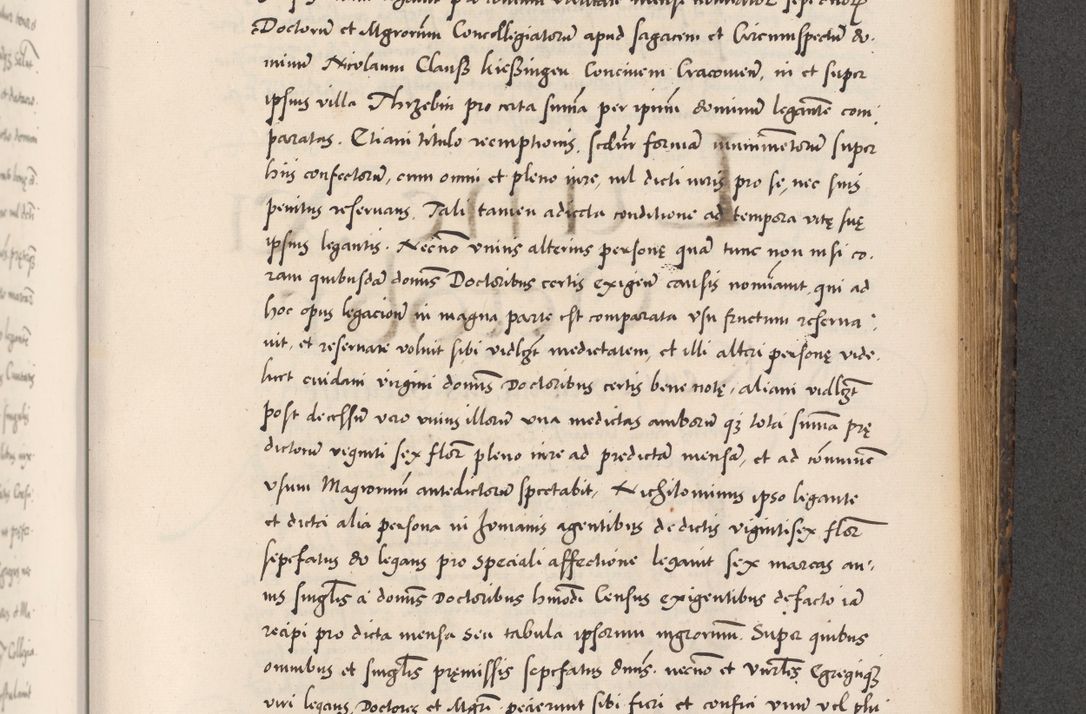 Doctorũ et Mgrorũm Concollegiatorũ apud sagacem et Circumspectũ do-
minũ Nicolaum Clauß kießingeu Concivem Cracovieñ, in et super
ipsius villa Thrzebin pro certa sum̃a per ipm̃ dominũ legantẽ com
paratas. Etiam titulo reemptionis, scdm̃ formam̃ munimentorũ super
hiis confectorũ, cum omni et pleno iure, nil dicti iuris pro se, nec suis
penitus reservans. Tali tamen adiecta conditione ad tempora vitę suę
ipsius legantis. Necno unius alterius personę quã tunc non nisi co-
ram quibusdã domiis Doctoribus certis exigeñ causis nominavit, qui ad
hoc opus legacionũ in magna parte est comparata usu fructum reserva
vit, et reservare voluit sibi vidlzt medietatem, et illi alteri personę vide-
licet cuidam virgini domiis Doctoribus certis bene notę, aliam vidlzt
post decessũ vero unius illorũ una medietas amborũ qz tota sum̃a prę
dictorũ viginti sex flor̃ pleno iure ad predictã mensã, et ad com̃unẽ
usum Magrorum̃ antedictorũ spectabit, Nichilominus ipso legante
et dicta alia persona in humanis agentibus de dictis vigintisex flor̃
sepefatus do legans pro speciali affectione legavit sex marcas an-
nis singlis a domiis Doctoribus hmodi Census exigentibus defacto iã
recipi pro dicta mensa seu tabula ipsorum mgrorum̃. Super quibus
omnibus et singlis pręmissis sepefatus dñus. necno et Univrlis Egregiiqz
viri legans, Doctores et Mgri pecierunt sibi fieri et confici unũ vel plu